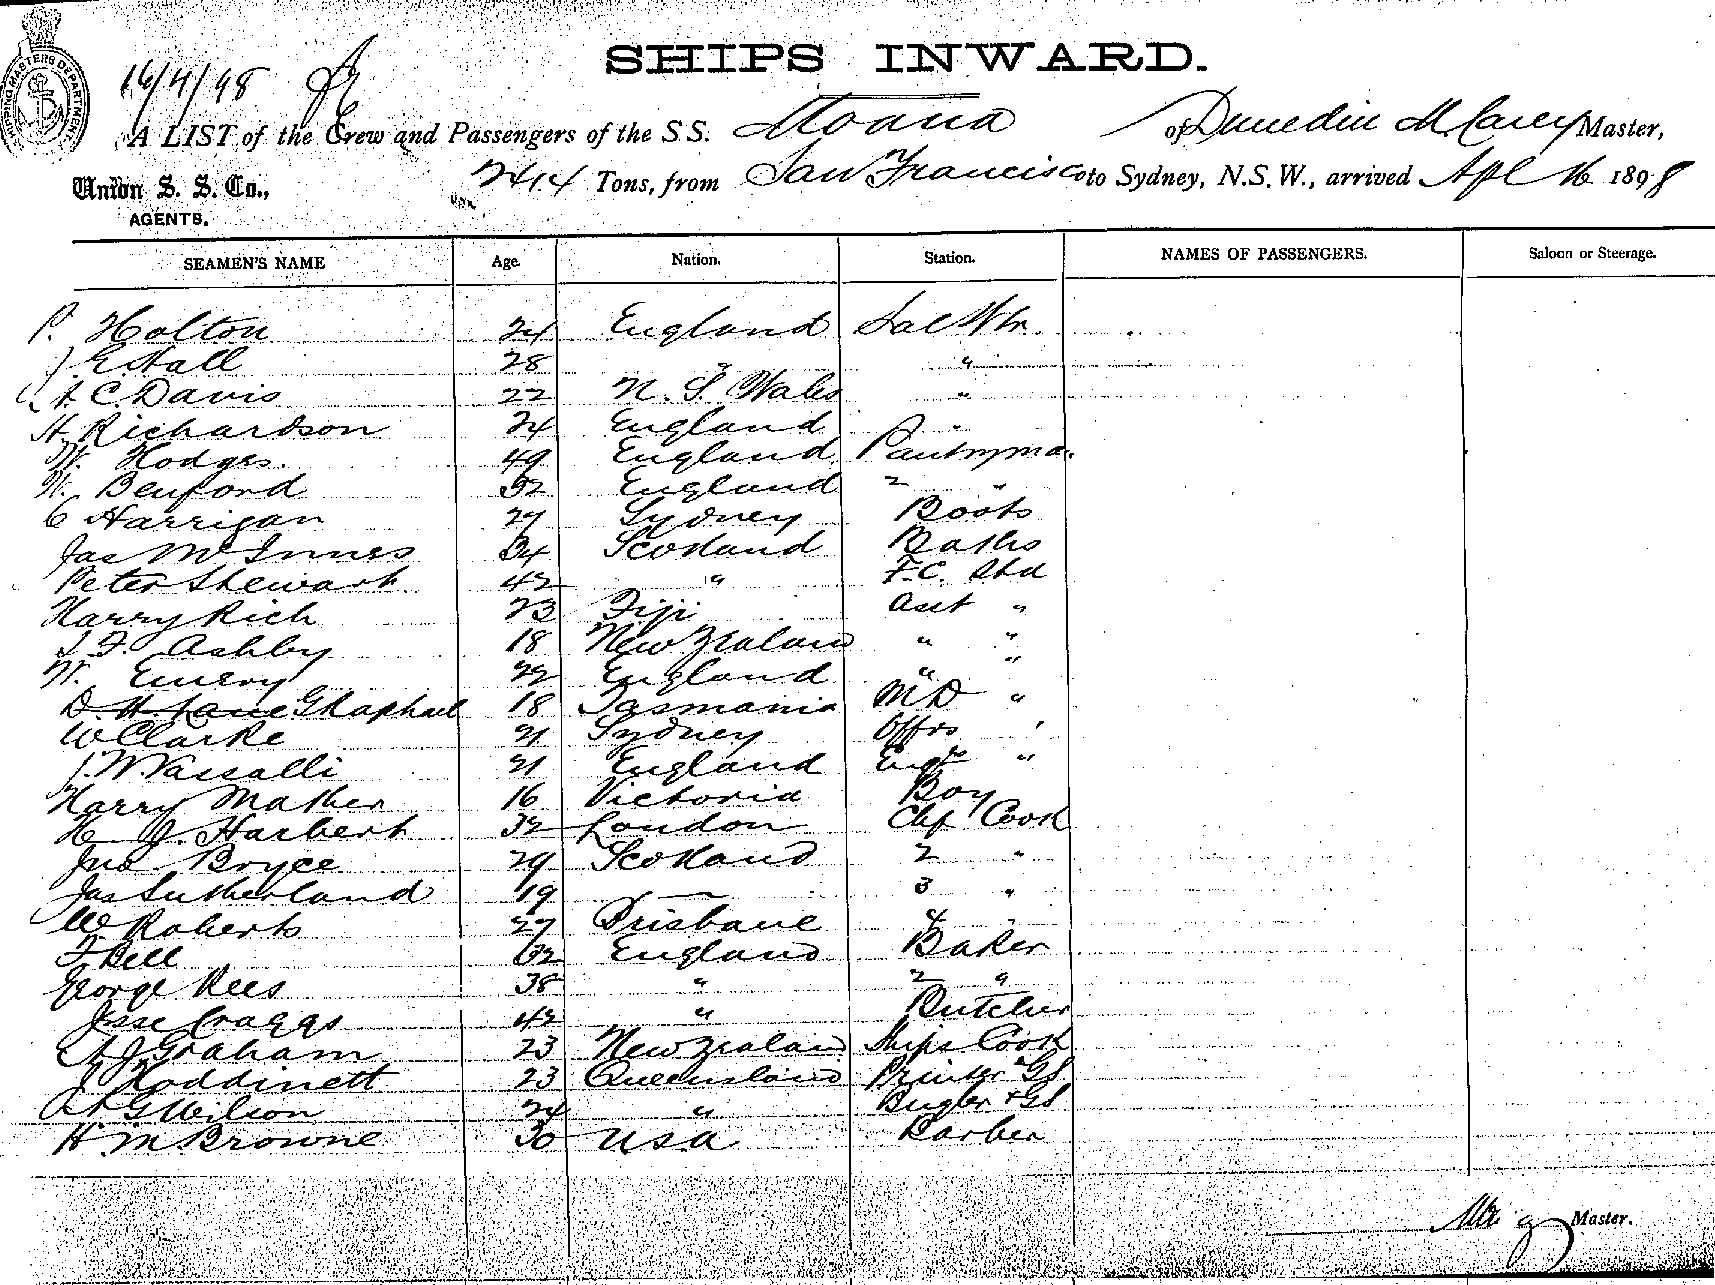 SHIPS INWARD.
16/4/98
A LIST of the Crew and Passengers of the S.S. Moana of Dunedin M Carey Master,
Union S. S. Co., 2414 Tons, from San Francisco to Sydney, N.S.W., arrived Apl 16 1898
AGENTS.
SEAMEN'S NAME Age. Nation. Station. NAMES OF PASSENGERS. Saloon or Steerage.
P. Holton 24 England Sal Wtr.
J. E. Hall 28 " "
A. C. Davis 22 N. S. Wales "
H. Richardson 24 England "
W. Hodges 49 England Pantryma.
W. Benford 32 England 2 "
C Harrigan 27 Sydney Boots
Jas McInnes 34 Scotland Baths
Peter Stewart 42 " F.C. Std
Harry Rich 23 Fiji Asst "
F. Ashby 18 New Zealand " "
W. Emery 22 England " "
D. H. Lane G Raphael 18 Tasmania M D "
W Clarke 21 Sydney Offrs "
J. W. Vassalli 21 England Engrs "
Harry Mather 16 Victoria Boy
H J. Harbert 32 London Chf Cook
Jno Bryce 29 Scotland 2 "
Jas Sutherland 19 — 3 "
W Roberts 27 Brisbane 4 "
F. Bell 32 England Baker
George Rees 38 " 2 "
Jesse Craggs 42 " Butcher
A J. Graham 23 New Zealand Ships Cook
J Hoddinett 23 Queensland Printer GS
A G Wilson 24 " Bugler + GS
H. M Browne 30 U.S.A Barber
Master.